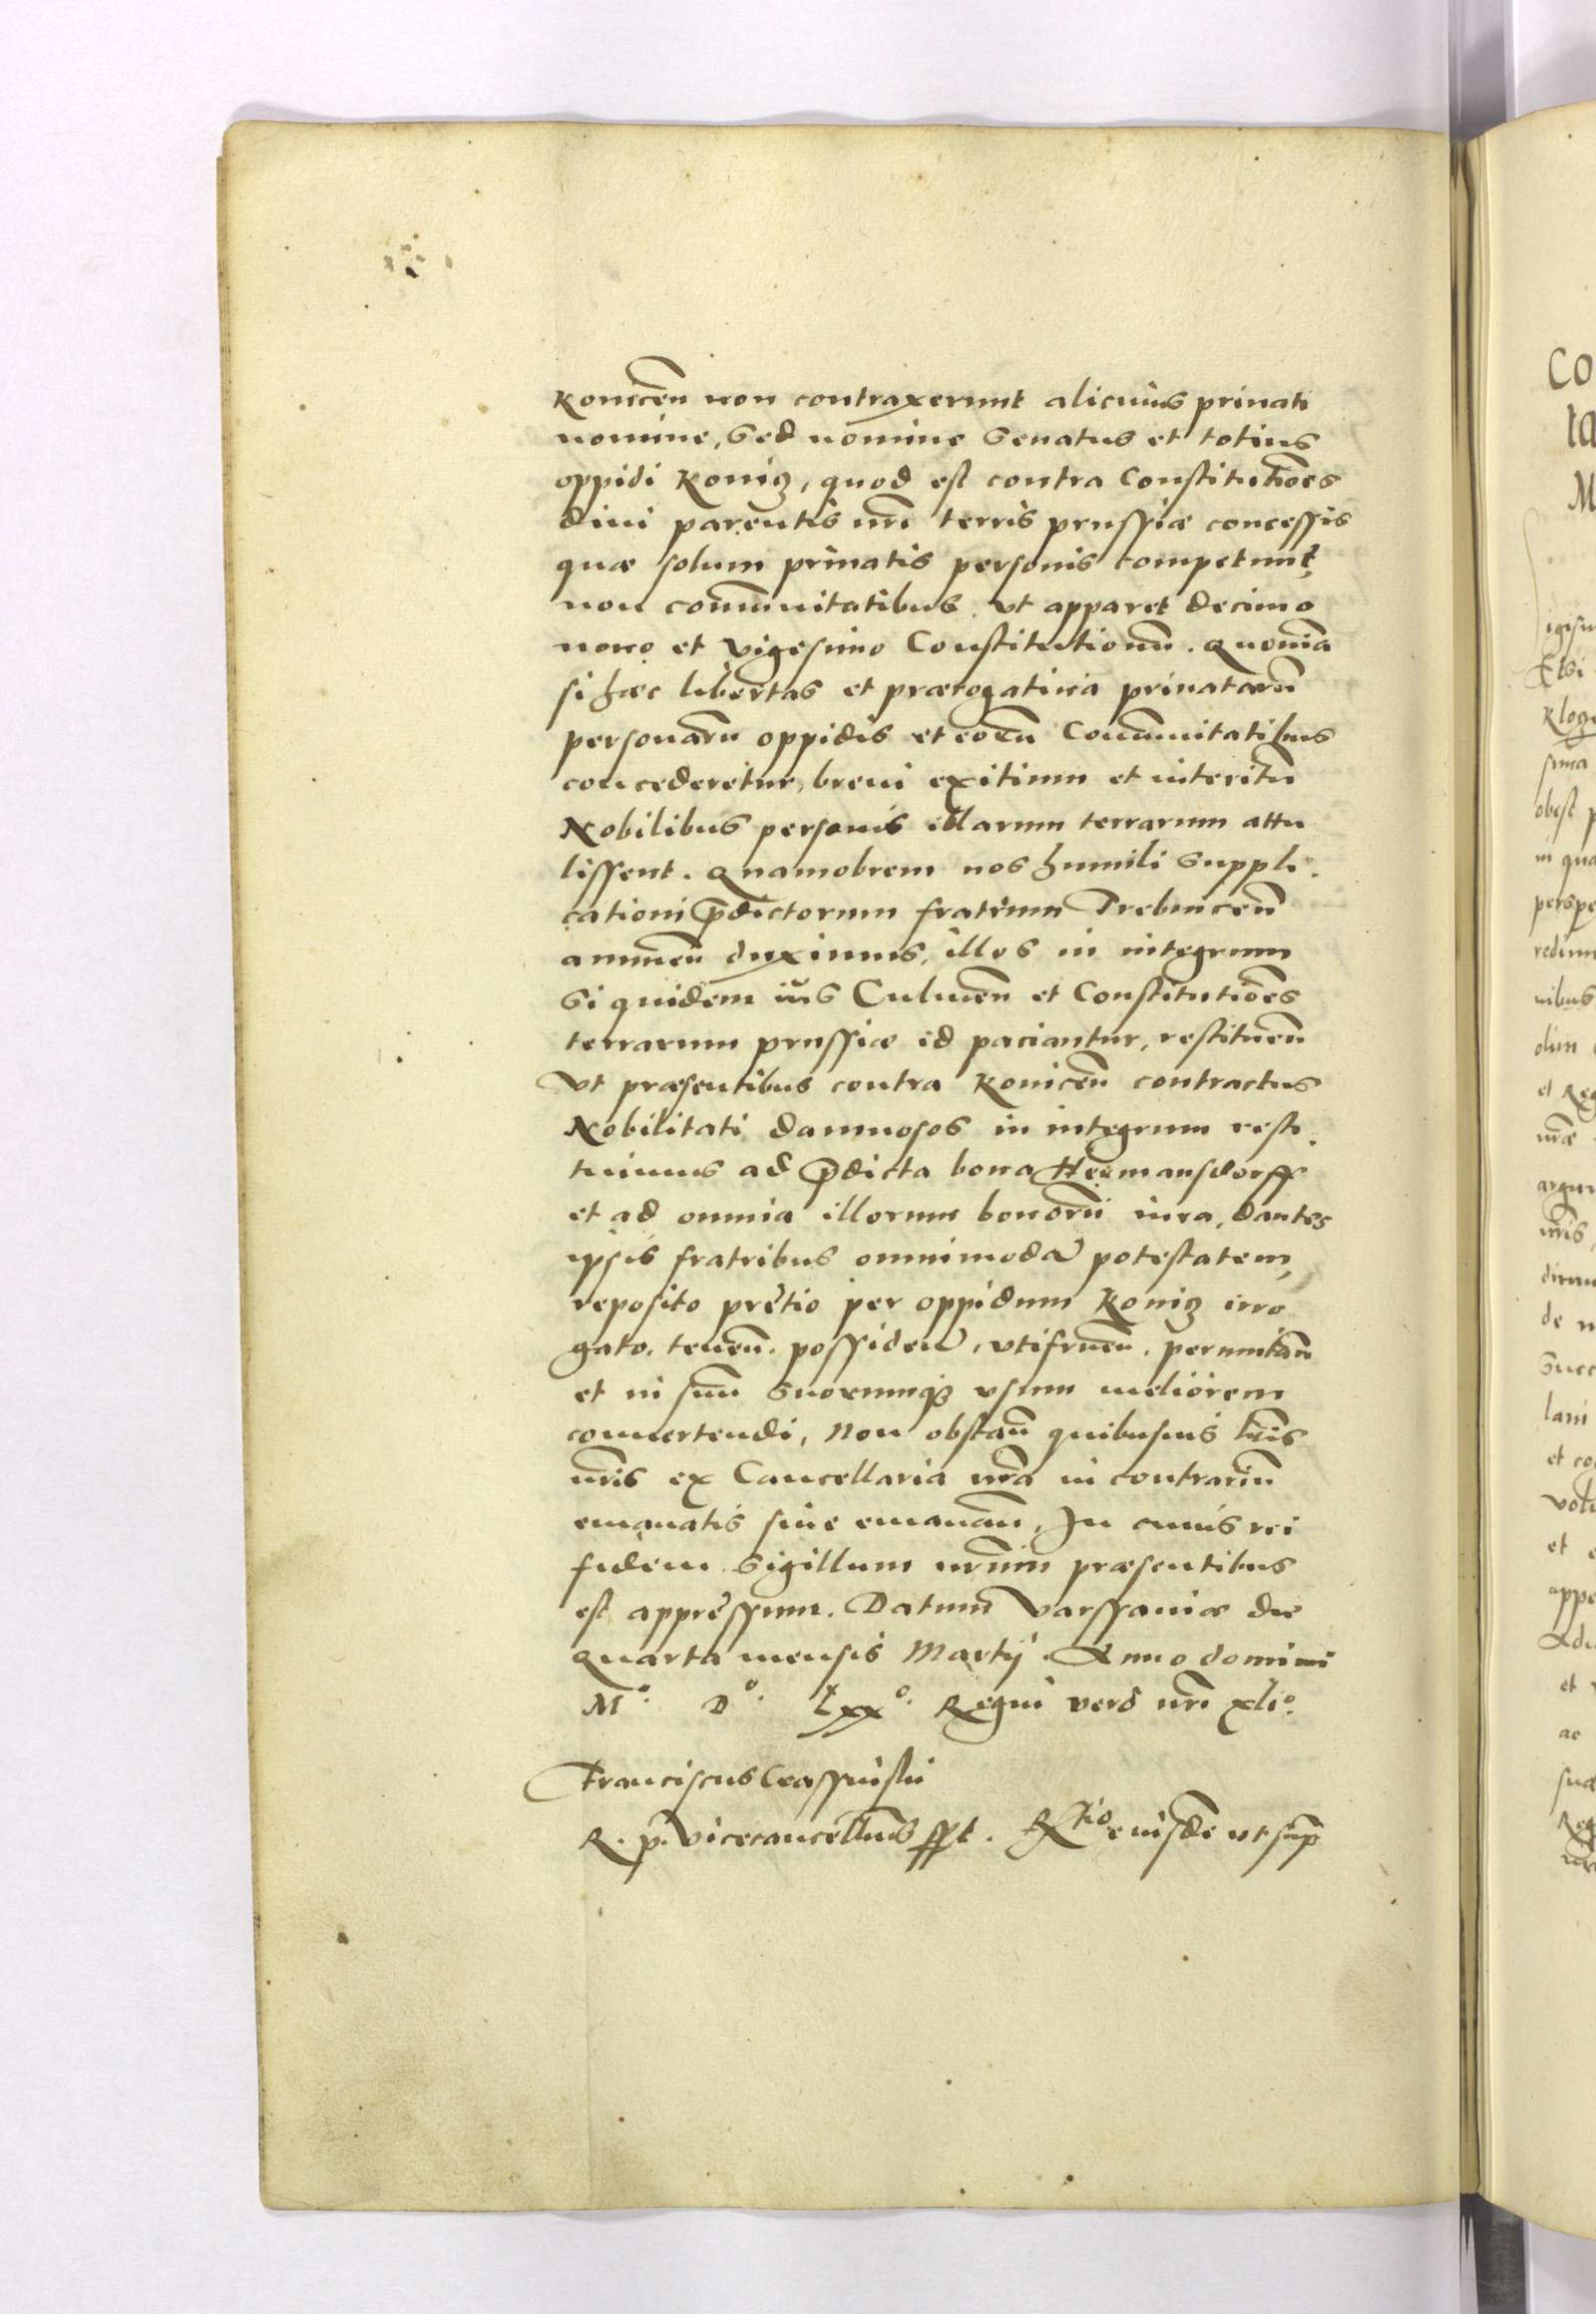 Konicen̄ non contraxerunt alicuius priuati
nomine, sed nomine Senatus et totius
oppidi Konicz, quod est contra Constitutiōes
diui parentis nr̄i terris prussiæ concessis
quæ solum priuatis personis competunt,
non com̄unitatibus, vt apparet decimo
nono et vigesimo Constitutionū. Quoniā
si hæc libertas et prærogatiua priuatarū
personarū oppidis et eorū Com̄unitatibus
concederetur, breui exitium et interitū
Nobilibus personis illarum terrarum attu
lissent. Quamobrem nos humili suppli-
cationi p̄dictorum fratrum Trebnicen̄
annuen̄ duximus, illos in integrum
Si quidem ius Culmen̄ et Constitutiōes
terrarum prussiæ id paciantur, restituen̄
Vt præsentibus contra Konicen̄ contractus
Nobilitati damnosos in integrum resti-
tuimus ad p̄dicta bona Hermansdorff
et ad omnia illorum bonorū iura, dantes
ipsis fratribus omnimodā potestatem,
reposito pretio per oppidum Konicz irro
gato, tenen̄. possiden̄, vtifruen̄. permutan̄
et in suū suorumqꝫ vsum meliorem
conuertendi, Non obstan̄ quibusuis lr̄is
nr̄is ex Cancellaria nr̄a in contrariū
emanatis siue emanan̄, In cuius rei
fidem Sigillum nr̄um præsentibus
est appressum. Datum Varssauiæ die
quarta mensis Martij. Anno domini
Mº. Dº. Lxxº. Regni vero nr̄i xliº.
Franciscus Crassinskii
R. p. Vicecancellarius sspt. R̄tio eiusdē vt supͣ
Co
ta
M
igisu
Etsi
Klocz
sima
obest p
in qua
perspe
redim
nibus
olim
et Reg
nr̄æ
argu
nr̄is
dimu
de n
Succ
lani
et co
volu
et e
appe
Adu
et
ac
suæ
Reg